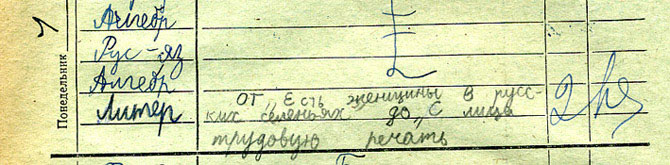 Понедельник
Алгебр
Рус-яз
Алгебр
Литер
от „Есть женщины в русс-
ких селеньях" до „С лица
трудовую печать
2